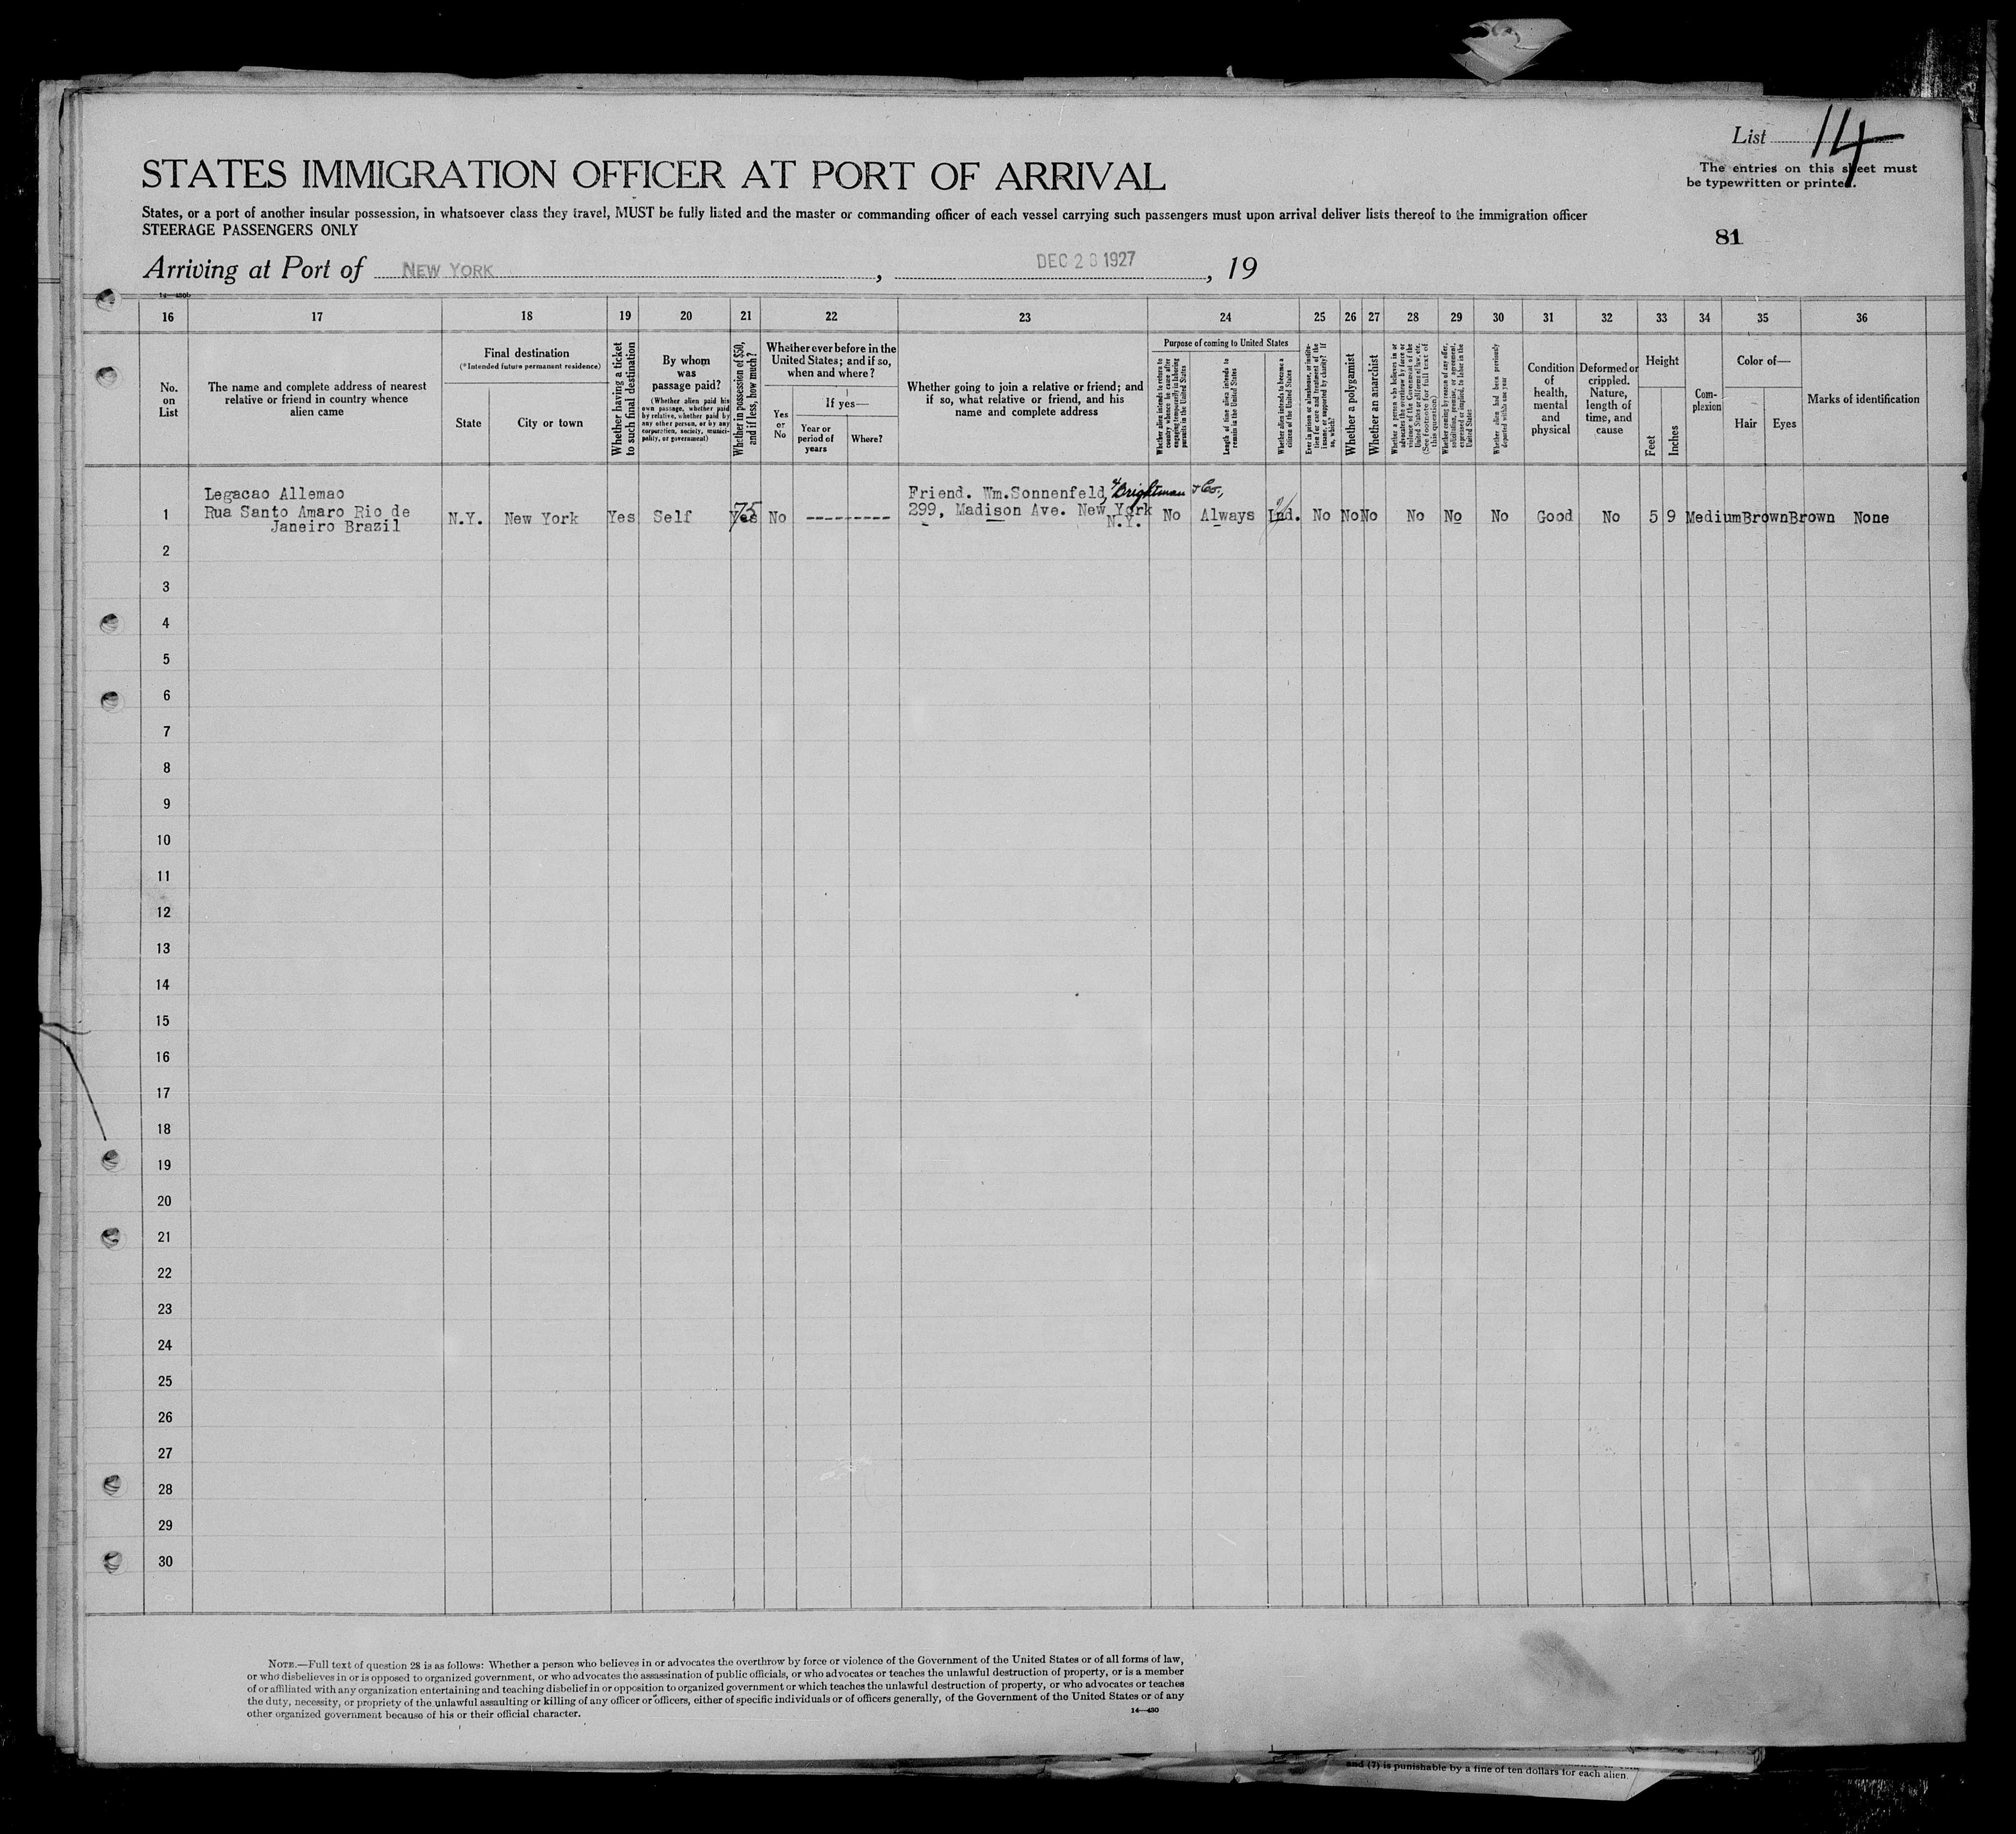 List 14
The entries on this sheet must
be typewritten or printed.
STATES IMMIGRATION OFFICER AT PORT OF ARRIVAL
States, or a port of another insular possession, in whatsoever class they travel, MUST be fully listed and the master or commanding officer of each vessel carrying such passengers must upon arrival deliver lists thereof to the immigration officer
STEERAGE PASSENGERS ONLY
81
Arriving at Port of NEW YORK, DEC 28 1927, 19
14—430b
16 17 18 19 20 21 22 23 24 25 26 27 28 29 30 31 32 33 34 35 36
No.
on
List
The name and complete address of nearest
relative or friend in country whence
alien came
Final destination
(*Intended future permanent residence)
State
City or town
Whether having a ticket
to such final destination
By whom
was
passage paid?
(Whether alien paid his
own passage, whether paid
by relative, whether paid by
any other person, or by any
corporation, society, munici-
pality, or government)
Whether in possession of $50,
and if less, how much?
Whether ever before in the
United States; and if so,
when and where?
Yes
or
No
If yes—
Year or
period of
years
Where?
Whether going to join a relative or friend; and
if so, what relative or friend, and his
name and complete address
Purpose of coming to United States
Whether alien intends to return to
country whence he came after
engaging temporarily in laboring
pursuits in the United States
Length of time alien intends to
remain in the United States
Whether alien intends to become a
citizen of the United States
Ever in prison or almshouse, or institu-
tion for care and treatment of the
insane, or supported by charity? If
so, which?
Whether a polygamist
Whether an anarchist
Whether a person who believes in or
advocates the overthrow by force or
violence of the Government of the
United States or all forms of law, etc.
(See footnote for full text of
this question)
Whether coming by reason of any offer,
solicitation, promise, or agreement,
expressed or implied, to labor in the
United States
Whether alien had been previously
deported within one year
Condition
of
health,
mental
and
physical
Deformed or
crippled.
Nature,
length of
time, and
cause
Height
Feet
Inches
Com-
plexion
Color of—
Hair
Eyes
Marks of identification
Legacao Allemao
Rua Santo Amaro Rio de
Janeiro Brazil
1
N.Y. New York Yes Self Yes 75 No ----------
Friend. Wm.Sonnenfeld, Brightman & Co.,
299, Madison Ave. New York
N.Y.
No Always Ind. No No No No No No Good No 5 9 Medium Brown Brown None
2
3
4
5
6
7
8
9
10
11
12
13
14
15
16
17
18
19
20
21
22
23
24
25
26
27
28
29
30
NOTE.—Full text of question 28 is as follows: Whether a person who believes in or advocates the overthrow by force or violence of the Government of the United States or of all forms of law,
or who disbelieves in or is opposed to organized government, or who advocates the assassination of public officials, or who advocates or teaches the unlawful destruction of property, or is a member
of or affiliated with any organization entertaining and teaching disbelief in or opposition to organized government or which teaches the unlawful destruction of property, or who advocates or teaches
the duty, necessity, or propriety of the unlawful assaulting or killing of any officer or officers, either of specific individuals or of officers generally, of the Government of the United States or of any
other organized government because of his or their official character.
14—430
and (7) is punishable by a fine of ten dollars for each alien